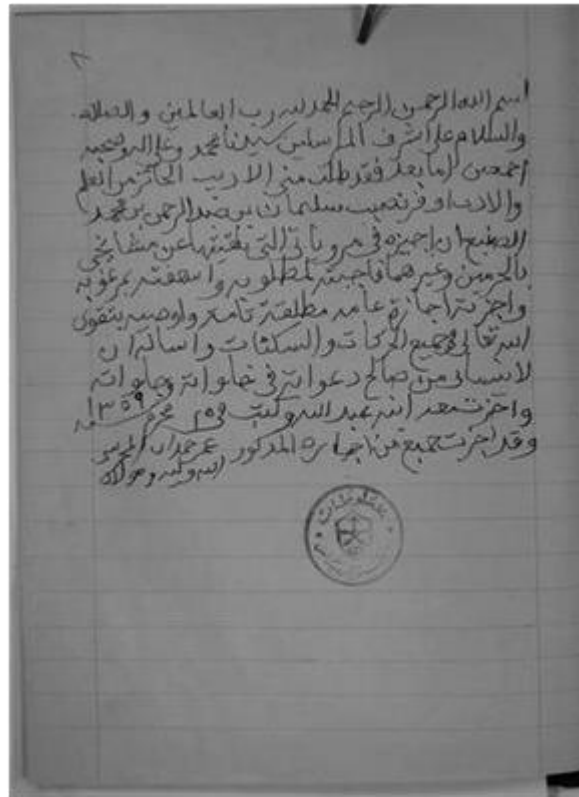 ٢
بسم الله الرحمن الرحيم الحمد لله رب العالمين والصلاة
والسلام على اشرف المرسلين سيدنا محمد وعلى اله وصحبه
اجمعين اما بعد فقد طلب مني الاديب الحائز من العلم
والادب اوفر نصيب سليمان بن عبد الرحمن بن محمد
الصنيع ان اجيزه في مروياتي التي تلقيتها عن مشايخي
بالحرمين وغيرهما فاجبته لمطلوبه واسعفته بمرغوبه
واجزته اجازة عامه مطلقة تامة واوصيه بتقوى
الله تعالى في جميع الحركات والسكنات واساله ان
لا ينساني من صالح دعواته في خلواته وجلواته
واجزت بعد ابنه عبد الله وكتب في محرم سنة ١٣٥٩
وقد اجزت جميع من اجازه المذكور عمر حمدان المحرسي